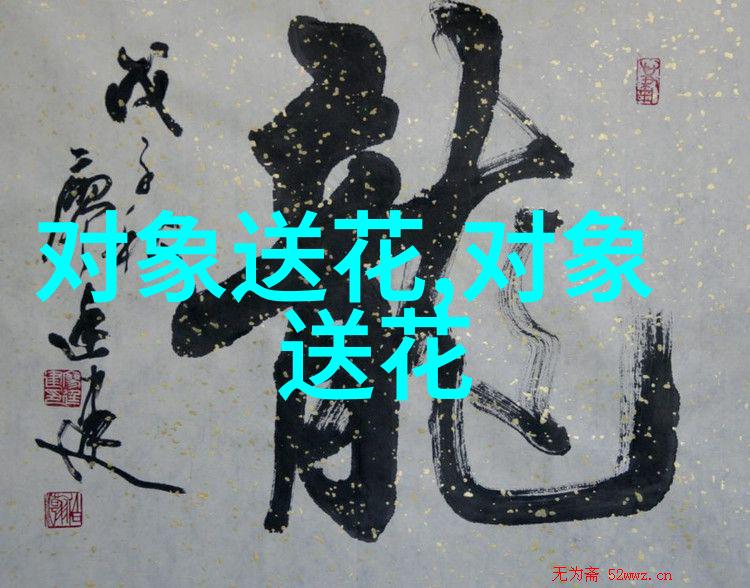 对象送花,对象
送花
龍
戊子秋
无为斋 52wwz.cn